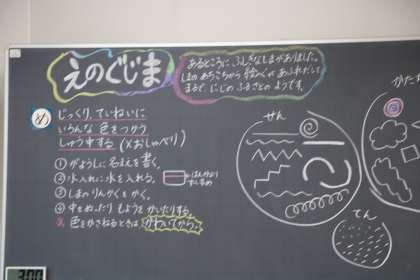 えのぐじま
あるところに ふしぎなしまがありました。
しまの あちこちから 絵のぐが あふれだして
まるで、にじの ふるさとの ようです。
め
じっくり、ていねいに
いろんな 色をつかう
しゅう中する (×おしゃべり)
① がようしに 名まえを書く。
② 水入れに水を入れる。
③ しまの りんかくを かく。
④ 中を ぬったり もようを かいたりする。
※ 色をかさねるときは かわいてから。
せん
てん
かたち
3:00